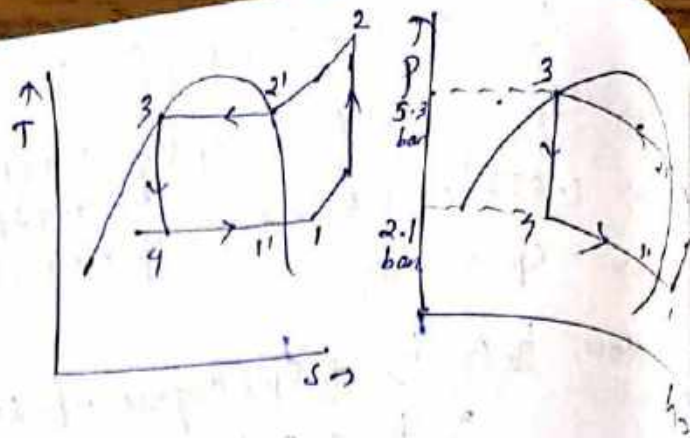 ↑
T
3
2'
2
4
1'
1
S →
↑
P
5.3
bar
3
2.1
bar
4
1'
1